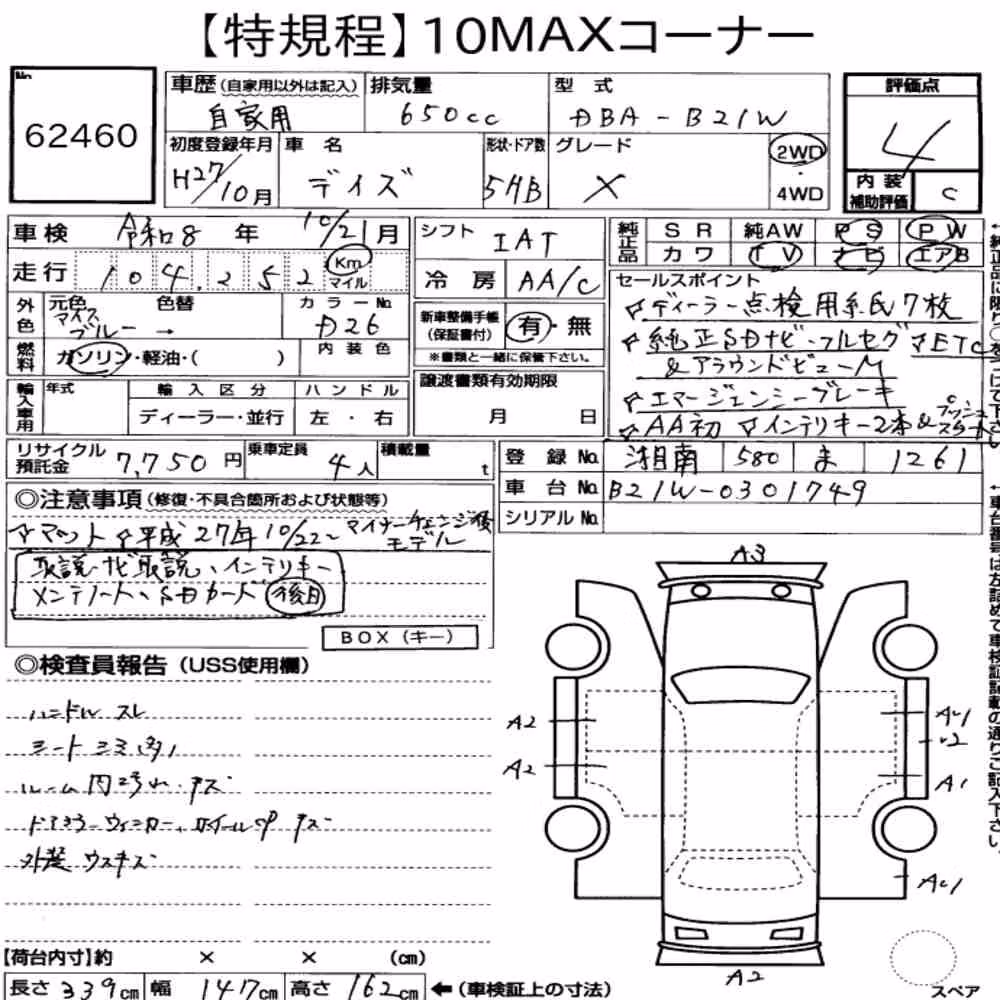 【特規程】10MAXコーナー
No.
62460
車歴(自家用以外は記入)
自家用
排気量
650cc
型式
DBA-B21W
評価点
4
初度登録年月
H27/10月
車名
デイズ
形状・ドア数
5HB
グレード
X
2WD
4WD
内装
補助評価
C
車検 令和8年 10/21月
シフト IAT
走行 104,252 Km
マイル
冷房 AA/C
純正品
SR 純AW PS PW
カワ TV ナビ エアB
外色
元色 色替
ブルー →
カラーNo.
D26
新車整備手帳
(保証書付)
有・無
※書類と一緒に保管下さい。
燃料
ガソリン・軽油・( )
内装色
セールスポイント
☆ディーラー点検用紙7枚
☆純正SDナビ・フルセグ ☆ETC
&アラウンドビューM
☆エマージェンシーブレーキ
☆AA初 ☆インテリキー2本&プッシュスタート
輸入車用
年式
輸入区分
ハンドル
ディーラー・並行
左・右
譲渡書類有効期限
月 日
リサイクル
預託金
7,750円
乗車定員
4人
積載量
t
登録No. 湘南 580 ま 1261
車台No. B21W-0301749
シリアルNo.
◎注意事項(修復・不具合箇所および状態等)
☆マット ☆平成27年10/22~マイナーチェンジ後モデル
取説・ナビ取説、インテリキー
メンテノート、SDカード 後日
BOX(キー)
◎検査員報告(USS使用欄)
ハンドル スレ
シート シミ(多)
ルーム内汚れ・キズ
ドアミラーウィンカー、ホイールCP キズ
外装 ウスキズ
A3
A2
A2
AU1
A1
AU1
A2
スペア
【荷台内寸】約 × × (cm)
長さ 339cm 幅 147cm 高さ 162cm ←(車検証上の寸法)